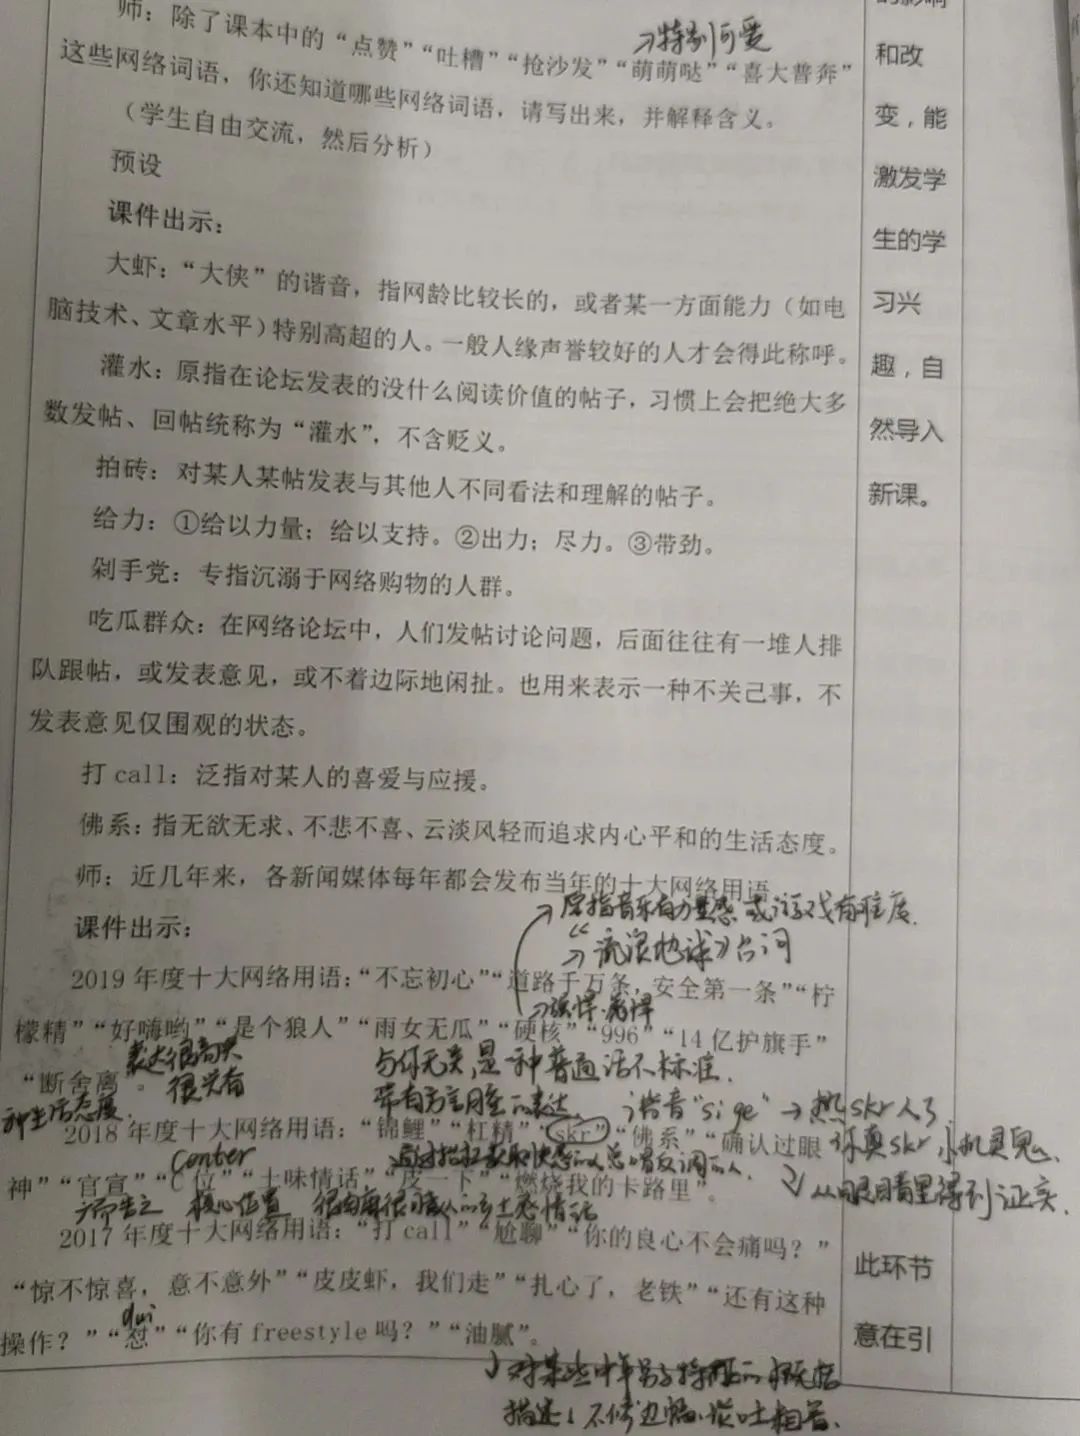 师：除了课本中的“点赞”“吐槽”“抢沙发”“萌萌哒”“喜大普奔”
→特别可爱
这些网络词语，你还知道哪些网络词语，请写出来，并解释含义。
（学生自由交流，然后分析）
预设
课件出示：
大虾：“大侠”的谐音，指网龄比较长的，或者某一方面能力（如电
脑技术、文章水平）特别高超的人。一般人缘声誉较好的人才会得此称呼。
灌水：原指在论坛发表的没什么阅读价值的帖子，习惯上会把绝大多
数发帖、回帖统称为“灌水”，不含贬义。
拍砖：对某人某帖发表与其他人不同看法和理解的帖子。
给力：①给以力量；给以支持。②出力；尽力。③带劲。
剁手党：专指沉溺于网络购物的人群。
吃瓜群众：在网络论坛中，人们发帖讨论问题，后面往往有一堆人排
队跟帖，或发表意见，或不着边际地闲扯。也用来表示一种不关己事，不
发表意见仅围观的状态。
打 call：泛指对某人的喜爱与应援。
佛系：指无欲无求、不悲不喜、云淡风轻而追求内心平和的生活态度。
师：近几年来，各新闻媒体每年都会发布当年的十大网络用语
→原指音乐有力量感或游戏有难度.
课件出示：
→流浪地球》台词
2019 年度十大网络用语：“不忘初心”“道路千万条，安全第一条”“柠
檬精”“好嗨哟”“是个狼人”“雨女无瓜”“硬核”“996”“14 亿护旗手”
“断舍离”。
表达很高兴
很兴奋
与你无关,是一种普通话不标准.
带有方言腔的表达.
种生活态度.
谐音“si ge”→热skr人了
2018 年度十大网络用语：“锦鲤”“杠精”“skr”“佛系”“确认过眼
你真skr小机灵鬼.
center
神”“官宣”“C 位”“土味情话”“皮一下”“燃烧我的卡路里”。
→从眼睛里得到证实.
核心位置
2017 年度十大网络用语：“打 call”“尬聊”“你的良心不会痛吗？”
“惊不惊喜，意不意外”“皮皮虾，我们走”“扎心了，老铁”“还有这种
dui
操作？”“怼”“你有 freestyle 吗？”“油腻”。
对某些中年男子特征的概括
描述:不修边幅.谈吐粗鲁.
的影响
和改
变，能
激发学
生的学
习兴
趣，自
然导入
新课。
此环节
意在引